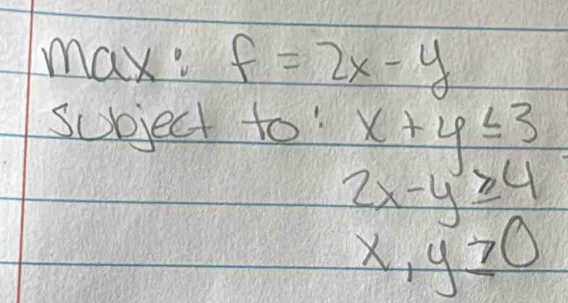 max: f = 2x - y
subject to: x + y ≤ 3
2x - y ≥ 4
x, y ≥ 0